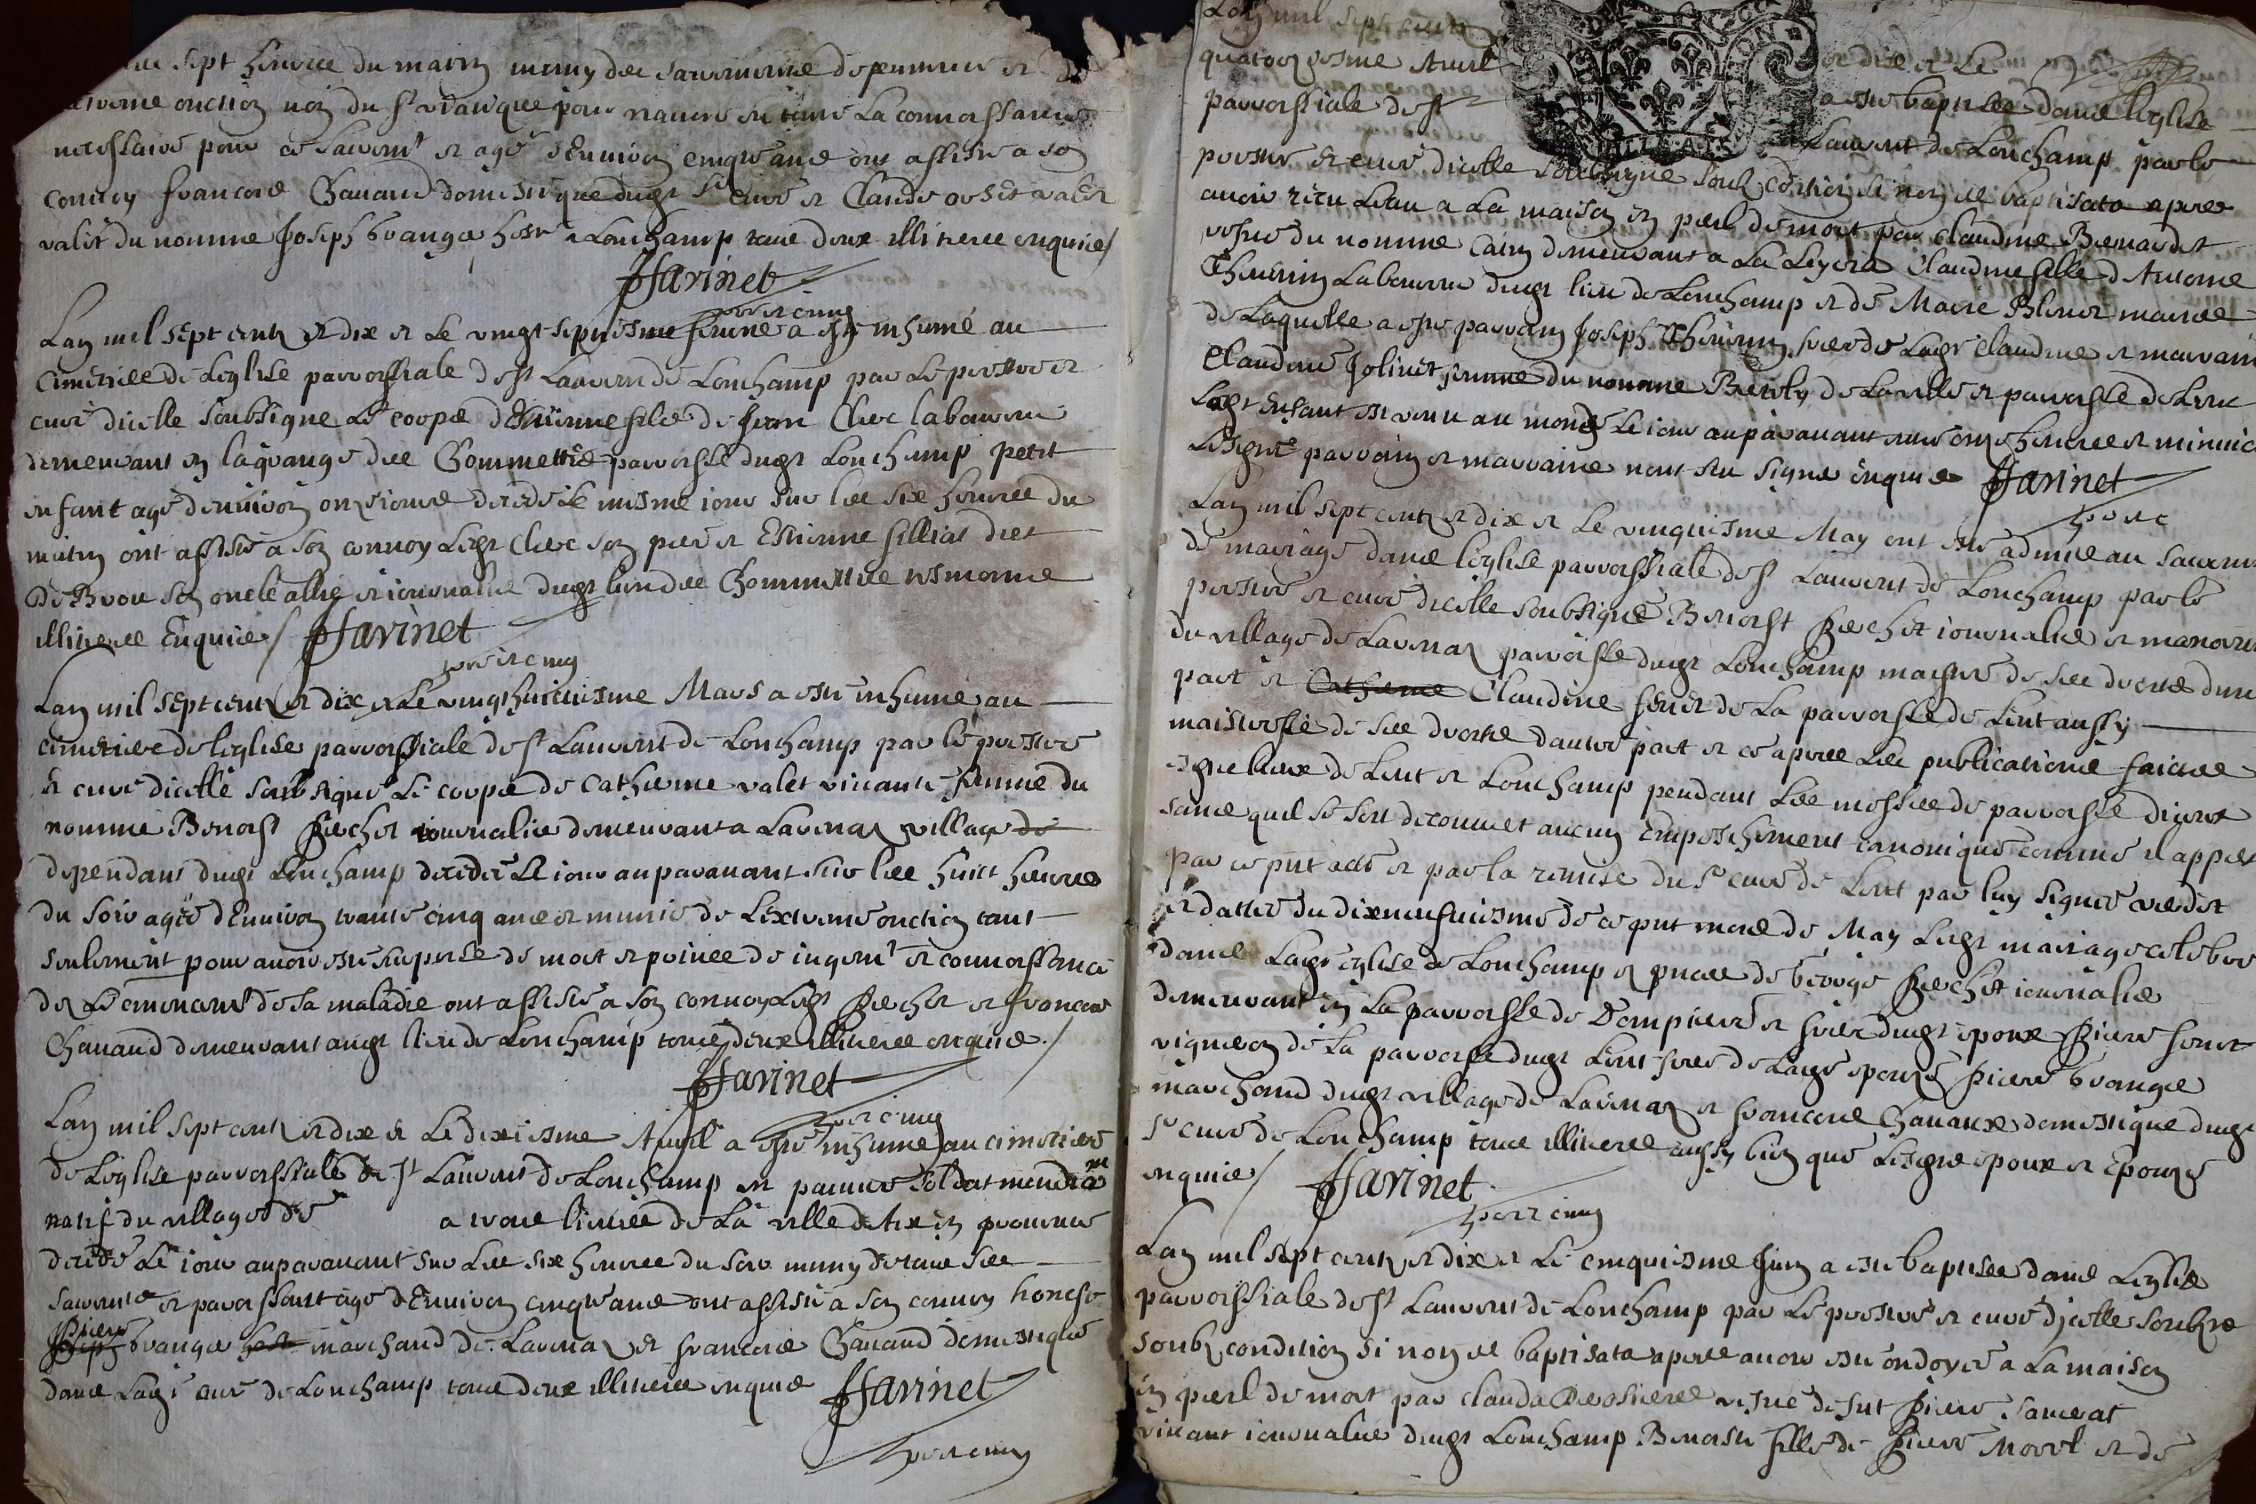 sept heures du matin muny des sacremens de penitence et
extreme onction non du st viatique pour navoir eu toute la connoissance
necessaire pour ce sacremt et agé denviron cinqte ans ont assisté a son
convoy francois Chanaud domestique dudt sr curé et Claude
valet du nommé Joseph brangé a Lonchamp tous deux illiteres enquis
Jfarinet
prtre et curé
Lan mil sept centz et dix et le vingt septiesme a esté inhumé au
cimetiere de leglise parroissiale de st Laurent de Lonchamp par le prestre et
curé dicelle soubsigné le corps destienne fils de Jean Clerc laboureur
demeurant en la grange des Chommettes parroisse dudt Lonchamp petit
enfant agé denviron onz jours decedé le mesme jour sur les six heures du
matin ont assisté a son convoy ledt Clerc son pere et Estienne fillias
de Brou son oncle allié et journalier dudt lieu des Chommettes tesmoins
illiteres Enquis Jfarinet
prtre et curé
Lan mil sept centz et dix et le vingthuictiesme Mars a esté inhumée au
cimetiere de leglise parroissiale de st Laurent de Lonchamp par le prestre
et curé dicelle soubsigné le corps de Catherine valet vivante femme du
nommé Benoist Perchet journalier demeurant a Lavenaz village de
dependant dudt Lonchamp decedée le jour auparavant sur les huict heures
du soir agée denviron trante cinq ans et munie de lextreme onction tant
seulement pour avoir esté surprise de mort et privée de jugemt et connoissance
dez le commencemt de sa maladie ont assisté a son convoy ledt Perchet et francois
Chanaud demeurant audt lieu de Lonchamp tous deux illiteres enquis
Jfarinet
prtre et curé
Lan mil sept centz et dix et le dixiesme Avril a esté inhumé au cimetiere
de leglise parroissiale de st Laurent de Lonchamp un pauvre soldat mendiant
natif du village de a trois lieues de la ville dAix en provence
decedé le jour auparavant sur les six heures du soir muny de tous ses
sacremts et paroissant agé denviron cinqte ans ont assisté a son convoy honeste
Pierre brangé marchand de Lavenaz et francois Chanaud domestique
dans ladt cure de Lonchamp tous deux illiteres enquis Jfarinet
prtre et curé
Lan mil sept centz et dix et le
quatorziesme Avril a esté baptisée dans leglise
parroissiale de st Laurent de Lonchamp par le
prestre et curé dicelle soubsigné soubz condition si non es baptisata apres
avoir receu leau a la maison en peril de mort par Claudine Bernardet
vefve du nommé Cain demeurant a la Leyera Claudine fille dAntoine
Thevenin laboureur dudt lieu de Lonchamp et de Marie Blenet mariés
de laquelle a esté parrain Joseph Thevenin frere de ladt Claudine et marraine
Claudine Jolivet femme du nommé Brevet de la ville et parroisse de Lent
ledt enfant est venu au monde le jour auparavant entre onze heures et minuict
lesdits parrain et marraine nont sceu signer enquis Jfarinet
prtre
Lan mil sept centz et dix et le vingtiesme May ont esté admis au sacremt
de mariage dans leglise parroissiale de st Laurent de Lonchamp par le
prestre et curé dicelle soubsigné Benoist Perchet journalier et manoeuvre
du village de Lavenaz parroisse dudt Lonchamp maistre de ses droits dune
part et Catherine Claudine feret de la parroisse de Lent aussy
maistresse de ses droits dautre part et ce apres les publications faictes
es eglises de Lent et Lonchamp pendant les messes de parroisse dicelles
sans quil se soit decouvert aucun Empeschement canonique comme il appert
par ce pnt acte et par la remise du sr curé de Lent par luy signée
et dattée du dixneufviesme de ce pnt mois de May ledt mariage celebré
dans ladt eglise de Lonchamp en pnce de george Perchet journalier
demeurant en la parroisse de Dompierre et frere dudt epoux Pierre feret
vigneron de la parroisse dudt Lent frere de ladt epouze Pierre brangé
marchand dudt village de Lavenaz et francois Chanaux domestique dudt
sr curé de Lonchamp tous illiteres aussy bien que lesdits epoux et Epouze
enquis Jfarinet
prtre et curé
Lan mil sept centz et dix et le cinquiesme Juin a esté baptisée dans leglise
parroissiale de st Laurent de Lonchamp par le prestre et curé dicelle soubzné
soubz condition si non es baptisata apres avoir esté ondoyée a la maison
en peril de mort par Clauda vefve de fut Pierre
vivant journalier dudt Lonchamp Benoiste fille de Pierre Morel et de